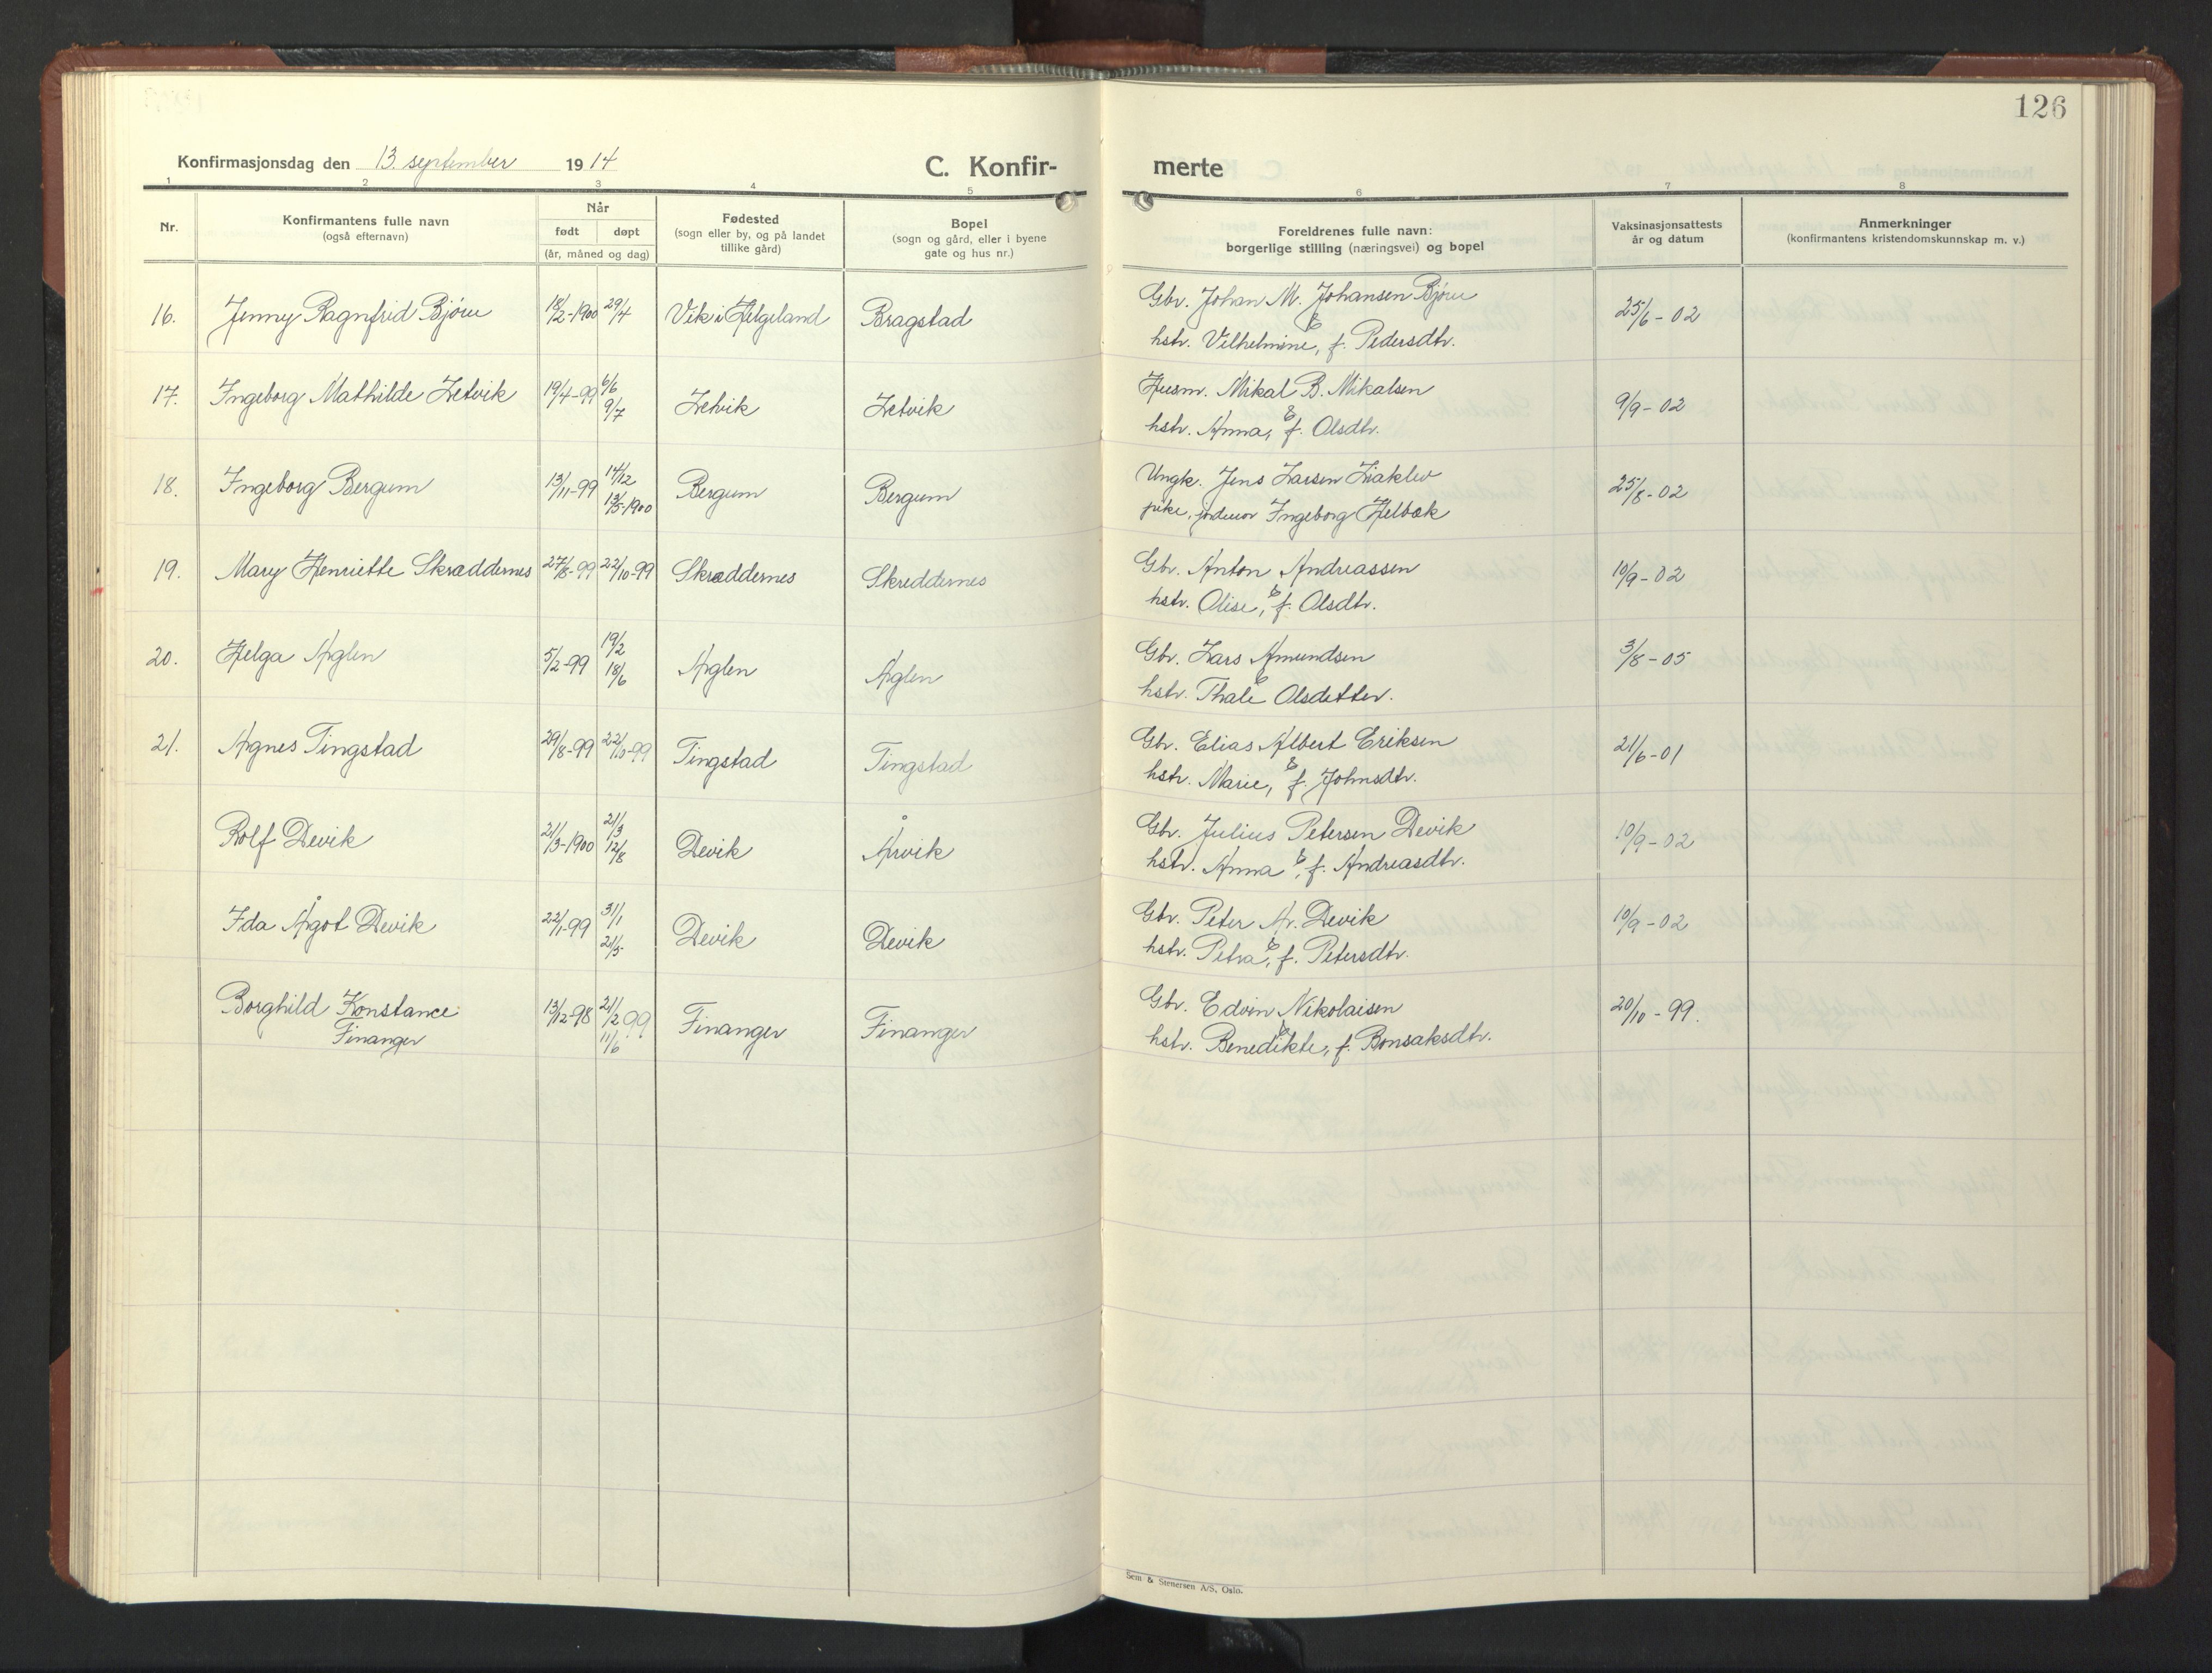 126
Konfirmasjonsdag den 13. september 1914
C. Konfir-
merte
1 2 3 4 5 6 7 8
Nr.
Konfirmantens fulle navn
(også efternavn)
Når
født døpt
(år, måned og dag)
Fødested
(sogn eller by, og på landet
tillike gård)
Bopel
(sogn og gård, eller i byene
gate og hus nr.)
Foreldrenes fulle navn:
borgerlige stilling (næringsvei) og bopel
Vaksinasjonsattests
år og datum
Anmerkninger
(konfirmantens kristendomskunnskap m. v.)
16. Jenny Ragnfrid Bjøru 18/2-1900 29/4 Vik i Helgeland Bragstad Gbr. Johan M. Johansen Bjøru 25/6-02
& hstr. Vilhelmine, f. Pedersdtr.
17. Ingeborg Mathilde Letvik 19/4-99 6/6 9/7 Letvik Letvik Husm. Mikal B. Mikalsen 9/9-02
& hstr. Anna, f. Olsdtr.
18. Ingeborg Bergum 13/11-99 14/12 13/5-1900 Bergum Bergum Ungk. Jens Larsen Liaklev 25/8-02
pike, jordmor Ingeborg Helbæk
19. Mary Henriette Skræddernes 27/8-99 22/10-99 Skræddernes Skreddernes Gbr. Anton Andreassen 10/9-02
& hstr. Olise, f. Olsdtr.
20. Helga Aglen 5/2-99 19/2 18/6 Aglen Aglen Gbr. Lars Amundsen 3/8-05
& hstr. Thale Olsdatter.
21. Agnes Tingstad 29/8-99 22/10-99 Tingstad Tingstad Gbr. Elias Albert Eriksen 21/6-01
& hstr. Marie, f. Johnsdtr.
Rolf Devik 21/3-1900 21/3 12/8 Devik Årvik Gbr. Julius Petersen Devik 10/9-02
& hstr. Anna, f. Andreasdtr.
Ida Ågot Devik 22/1-99 31/1 21/5 Devik Devik Gbr. Peter A. Devik 10/9-02
& hstr. Petra, f. Petersdtr.
Borghild Konstance 13/12-98 21/2 99 11/6 Finanger Finanger Gbr. Edvin Nikolaisen 20/10-99.
Finanger & hstr. Benedikte, f. Bonsaksdtr.
Sem & Stenersen A/S, Oslo.